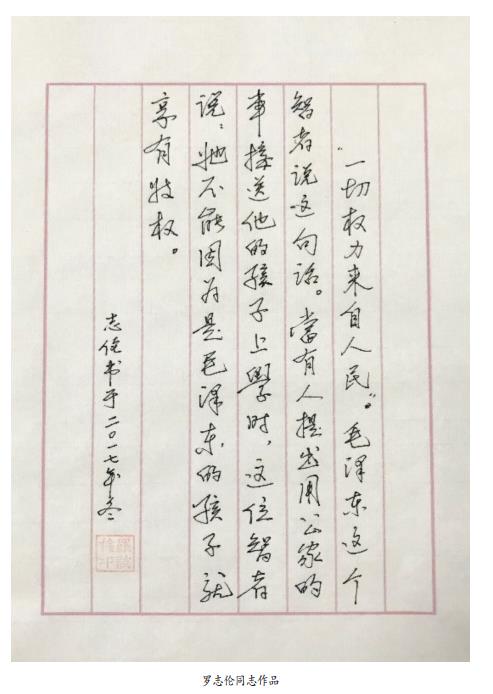 "一切权力来自人民"。毛泽东这个
智者说这句话。當有人提出用公家的
車接送他的孩子上學时，这位智者
说：她不能因为是毛泽东的孩子就
享有特权。
志伦书于二〇一七年冬
罗志伦同志作品